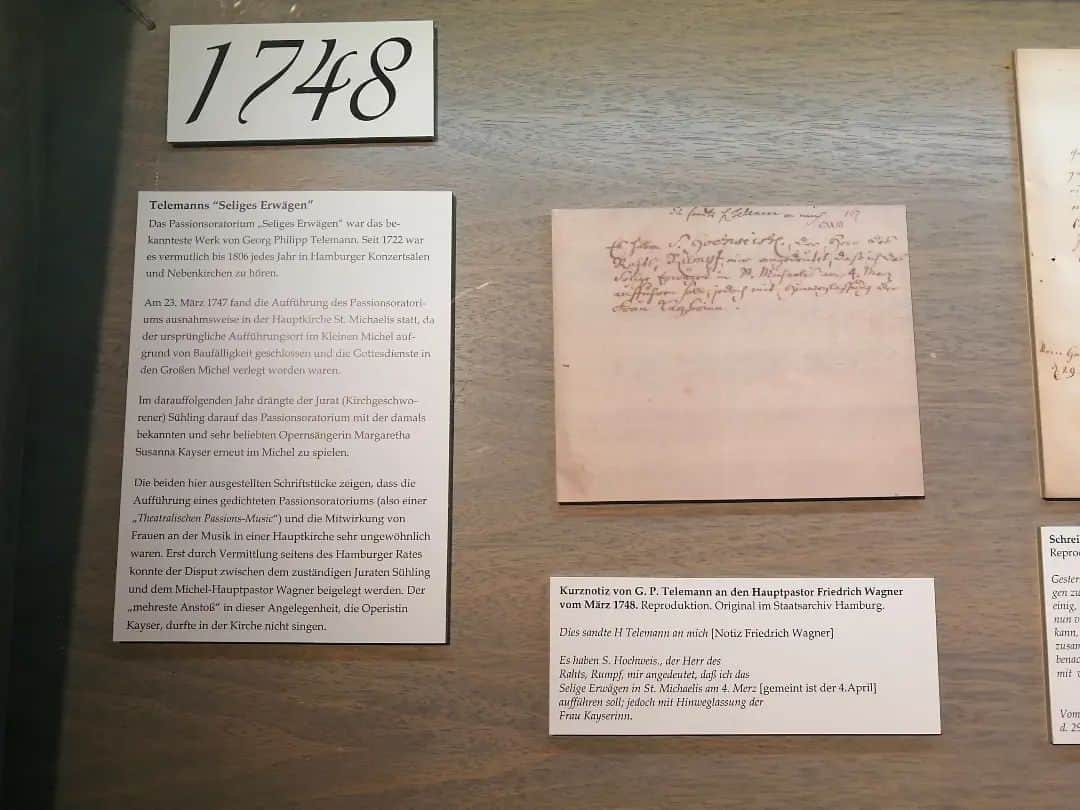 1748
Telemanns “Seliges Erwägen”
Das Passionsoratorium „Seliges Erwägen“ war das be-
kannteste Werk von Georg Philipp Telemann. Seit 1722 war
es vermutlich bis 1806 jedes Jahr in Hamburger Konzertsälen
und Nebenkirchen zu hören.
Am 23. März 1747 fand die Aufführung des Passionsoratori-
ums ausnahmsweise in der Hauptkirche St. Michaelis statt, da
der ursprüngliche Aufführungsort im Kleinen Michel auf-
grund von Baufälligkeit geschlossen und die Gottesdienste in
den Großen Michel verlegt worden waren.
Im darauffolgenden Jahr drängte der Jurat (Kirchgeschwo-
rener) Sühling darauf das Passionsoratorium mit der damals
bekannten und sehr beliebten Opernsängerin Margaretha
Susanna Kayser erneut im Michel zu spielen.
Die beiden hier ausgestellten Schriftstücke zeigen, dass die
Aufführung eines gedichteten Passionsoratoriums (also einer
„Theatralischen Passions-Music“) und die Mitwirkung von
Frauen an der Musik in einer Hauptkirche sehr ungewöhnlich
waren. Erst durch Vermittlung seitens des Hamburger Rates
konnte der Disput zwischen dem zuständigen Juraten Sühling
und dem Michel-Hauptpastor Wagner beigelegt werden. Der
„mehreste Anstoß“ in dieser Angelegenheit, die Operistin
Kayser, durfte in der Kirche nicht singen.
Es haben S. Hochweish., der Herr des
Rahts, Rumpf, mir angedeutet, daß ich das
Selige Erwägen in St. Michaelis am 4. Merz
aufführen soll; jedoch mit Hinweglassung der
Frau Kayserinn.
Kurznotiz von G. P. Telemann an den Hauptpastor Friedrich Wagner
vom März 1748. Reproduktion. Original im Staatsarchiv Hamburg.
Dies sandte H Telemann an mich [Notiz Friedrich Wagner]
Es haben S. Hochweis., der Herr des
Rahts, Rumpf, mir angedeutet, daß ich das
Selige Erwägen in St. Michaelis am 4. Merz [gemeint ist der 4.April]
aufführen soll; jedoch mit Hinweglassung der
Frau Kayserinn.
Schrei
Repro
Gester
gen zu
einig,
nun v
kann,
zusam
benac
mit v
Vom
d. 29